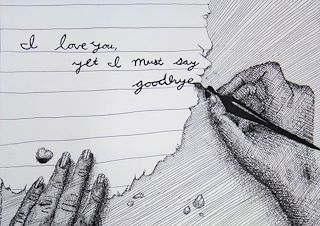 I love you,
yet I must say
goodbye